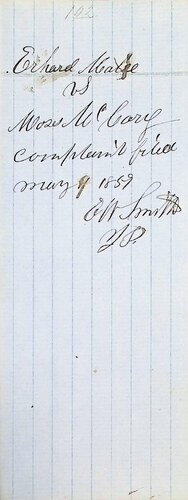 192
Erhard Malee
vs
Moses McCary
complaint filed
may 9 1859
E W Smith
J P.